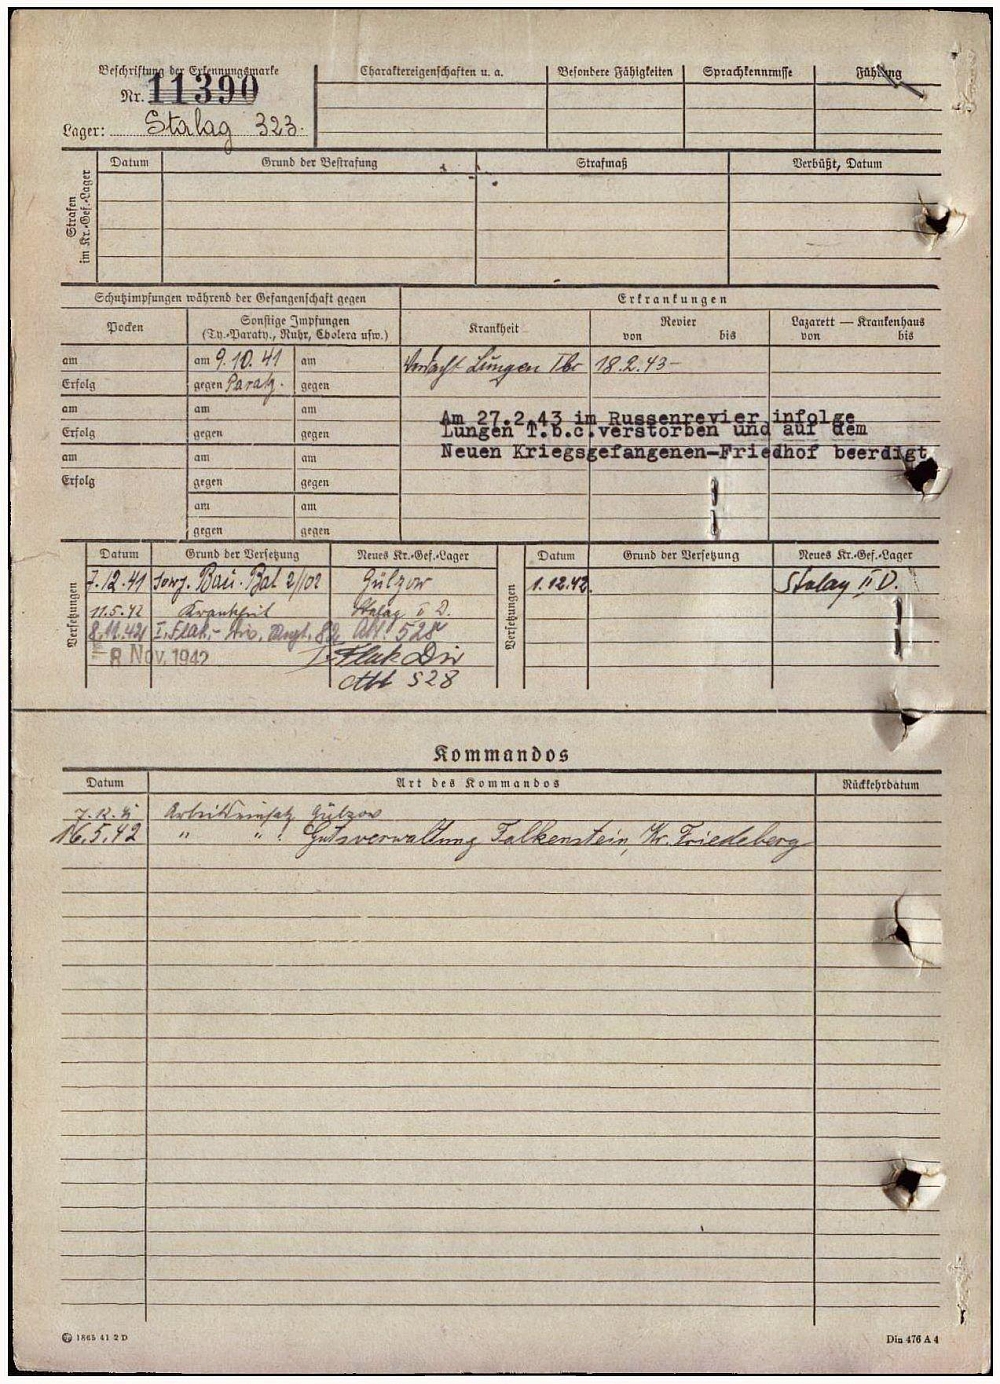 Beschriftung der Erkennungsmarke
Nr. 11390
Lager: Stalag 323.
Charaktereigenschaften u. a.
Besondere Fähigkeiten
Sprachkenntnisse
Führung
Strafen im Kr.-Gef.-Lager
Datum
Grund der Bestrafung
Strafmaß
Verbüßt, Datum
Schutzimpfungen während der Gefangenschaft gegen
Erkrankungen
Pocken
Sonstige Impfungen
(Ty.-Paraty., Ruhr, Cholera usw.)
Krankheit
Revier
von bis
Lazarett — Krankenhaus
von bis
am am 9.10.41 am Verdacht Lungen Tbc 18.2.43-
Erfolg gegen Paraty. gegen
am am am
Erfolg gegen gegen
am am am
Erfolg gegen gegen
am am
gegen gegen
Am 27.2.43 im Russenrevier infolge
Lungen T.b.c.verstorben und auf dem
Neuen Kriegsgefangenen-Friedhof beerdigt
Versetzungen
Datum Grund der Versetzung Neues Kr.-Gef.-Lager
7.12.41 sowj. Bau. Bat 2/02 Gülzow
11.5.42 Krankheit Stalag II D.
8.11.42 I. Flak.- Div. Abt. 528
8 Nov. 1942 I. Flak Div
Abt 528
Versetzungen
Datum Grund der Versetzung Neues Kr.-Gef.-Lager
1.12.42. Stalag II D.
Kommandos
Datum Art des Kommandos Rückkehrdatum
7.12.41 Arbeitseinsatz Gülzow
16.5.42 " " Gutsverwaltung Falkenstein, Kr. Friedeberg
1865 41 2 D
Din 476 A 4